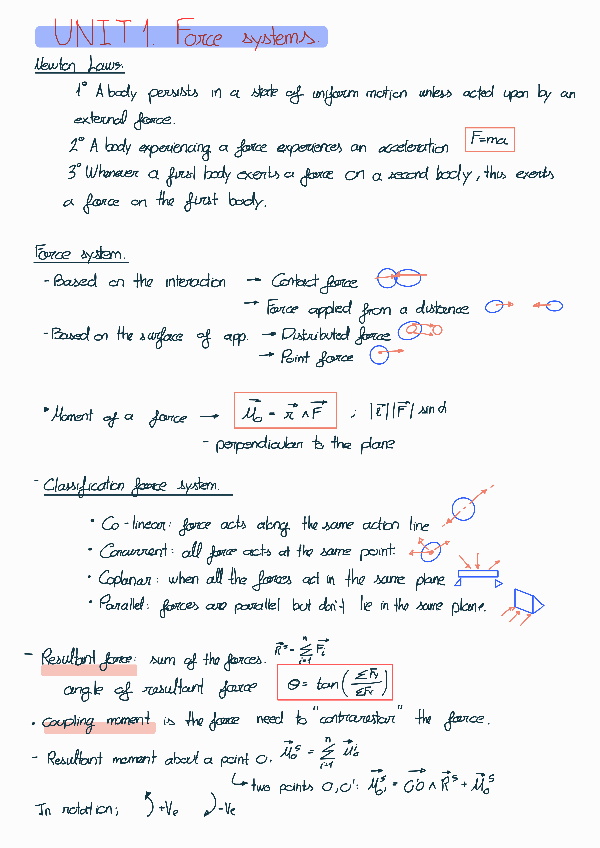 UNIT 1. Force systems.
Newton Laws.
1º A body persists in a state of uniform motion unless acted upon by an
external force.
2º A body experiencing a force experiences an acceleration F=ma
3º Whenever a first body exerts a force on a second body, thus exerts
a force on the first body.
Force system.
- Based on the interaction → Contact force
→ Force applied from a distance
- Based on the surface of app. → Distributed force
→ Point force
• Moment of a force → M⃗o = r⃗ ∧ F⃗ ; |r⃗||F⃗| sin α
- perpendicular to the plane
- Classification force system.
• Co-linear: force acts along the same action line
• Concurrent: all force acts at the same point.
• Coplanar: when all the forces act in the same plane
• Parallel: forces are parallel but don't lie in the same plane.
- Resultant force: sum of the forces. R⃗ˢ = Σⁿᵢ₌₁ F⃗ᵢ
angle of resultant force θ = tan (ΣFy / ΣFx)
• Coupling moment is the force need to "contrarestar" the force.
- Resultant moment about a point O. M⃗oˢ = Σⁿᵢ₌₁ M⃗oⁱ
↳ two points O, O': M⃗o'ˢ = O'O⃗ ∧ R⃗ˢ + M⃗oˢ
In rotation; +Ve -Ve